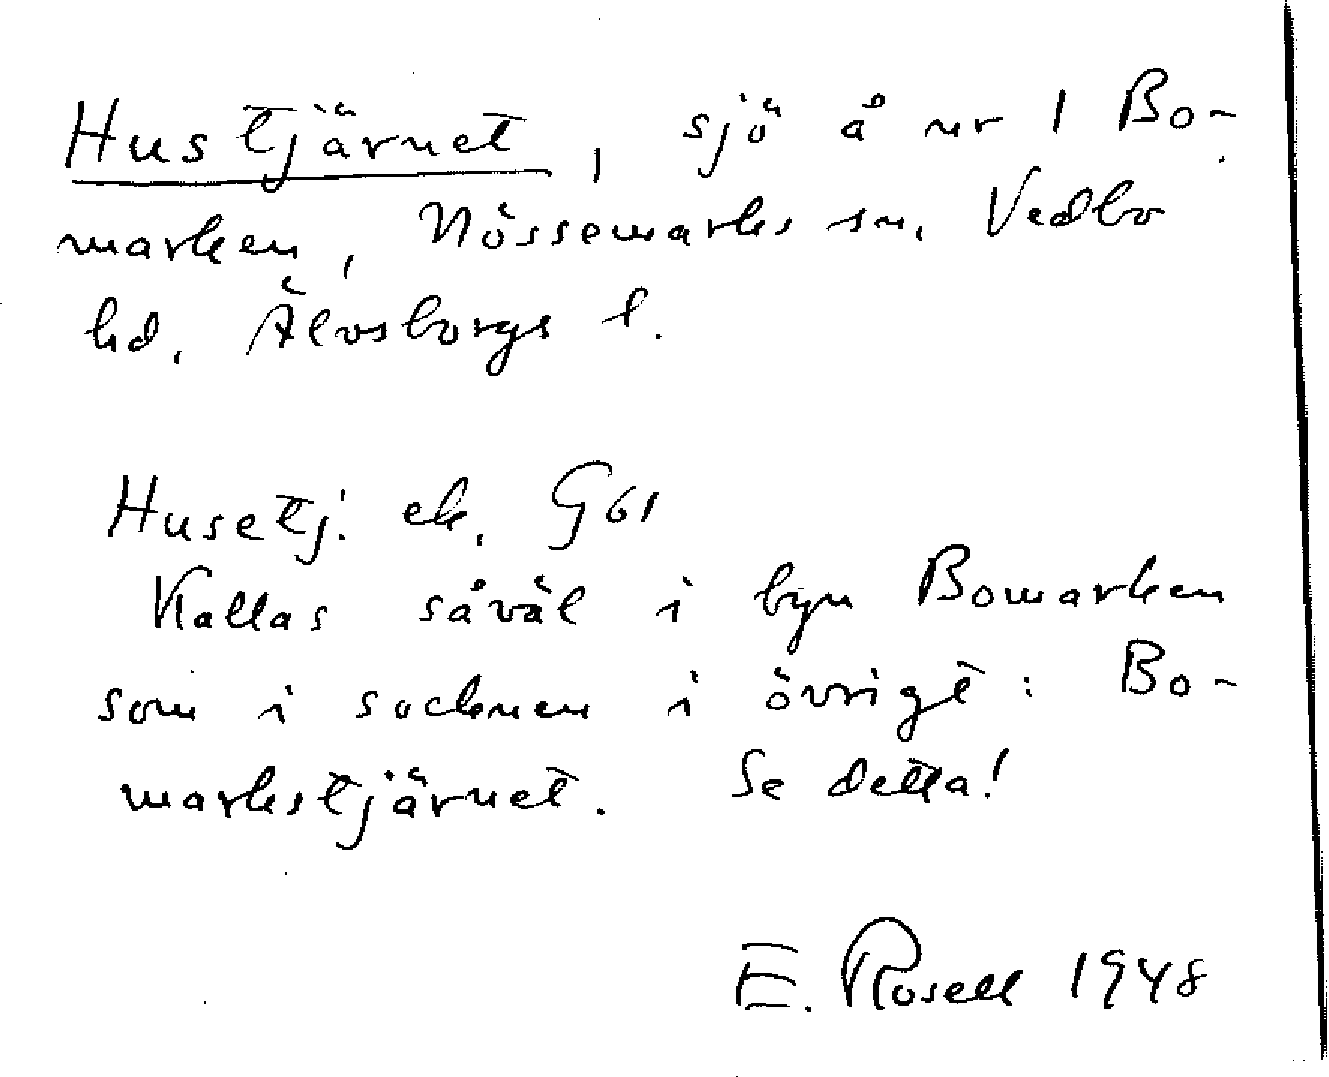 Hustjärnet, sjö å nr 1 Bo-
marken, Nössemarks sn, Vedbo
hd, Älvsborgs l.
Husetj. ek. G61
Kallas såväl i byn Bomarken
som i socknen i övrigt: Bo-
markstjärnet. Se detta!
E. Rosell 1948